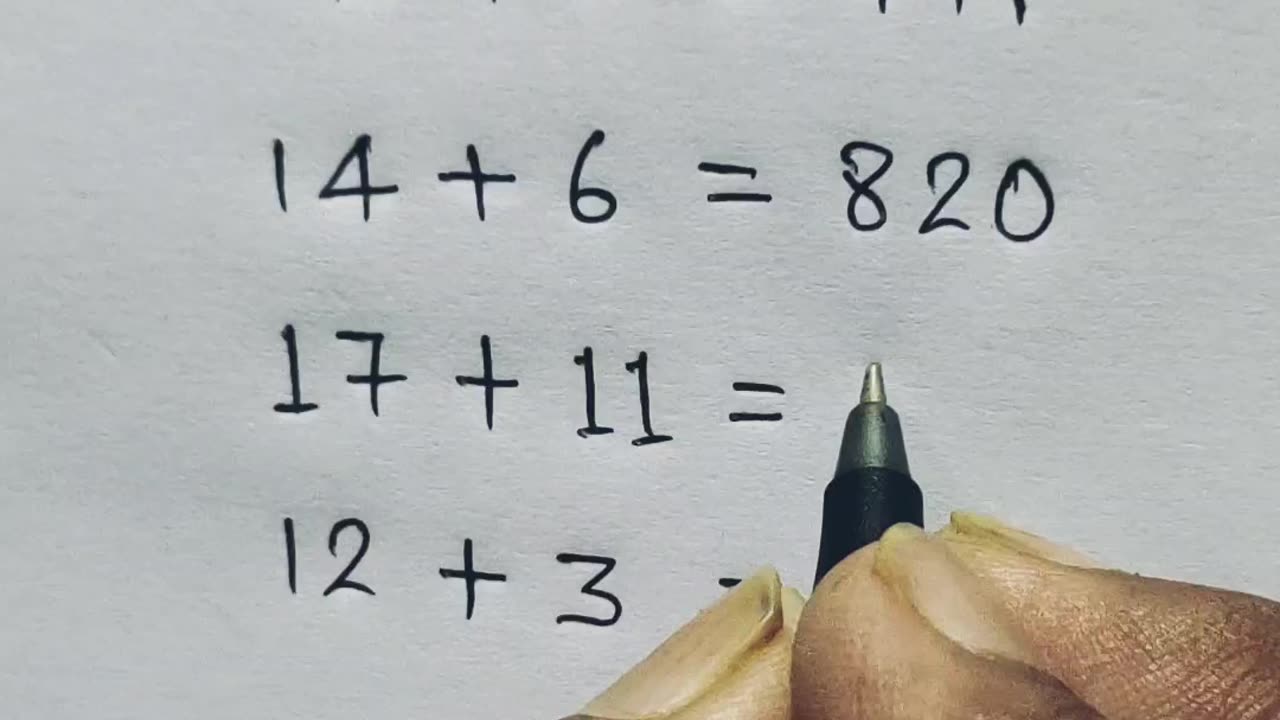 14 + 6 = 820
17 + 11 =
12 + 3